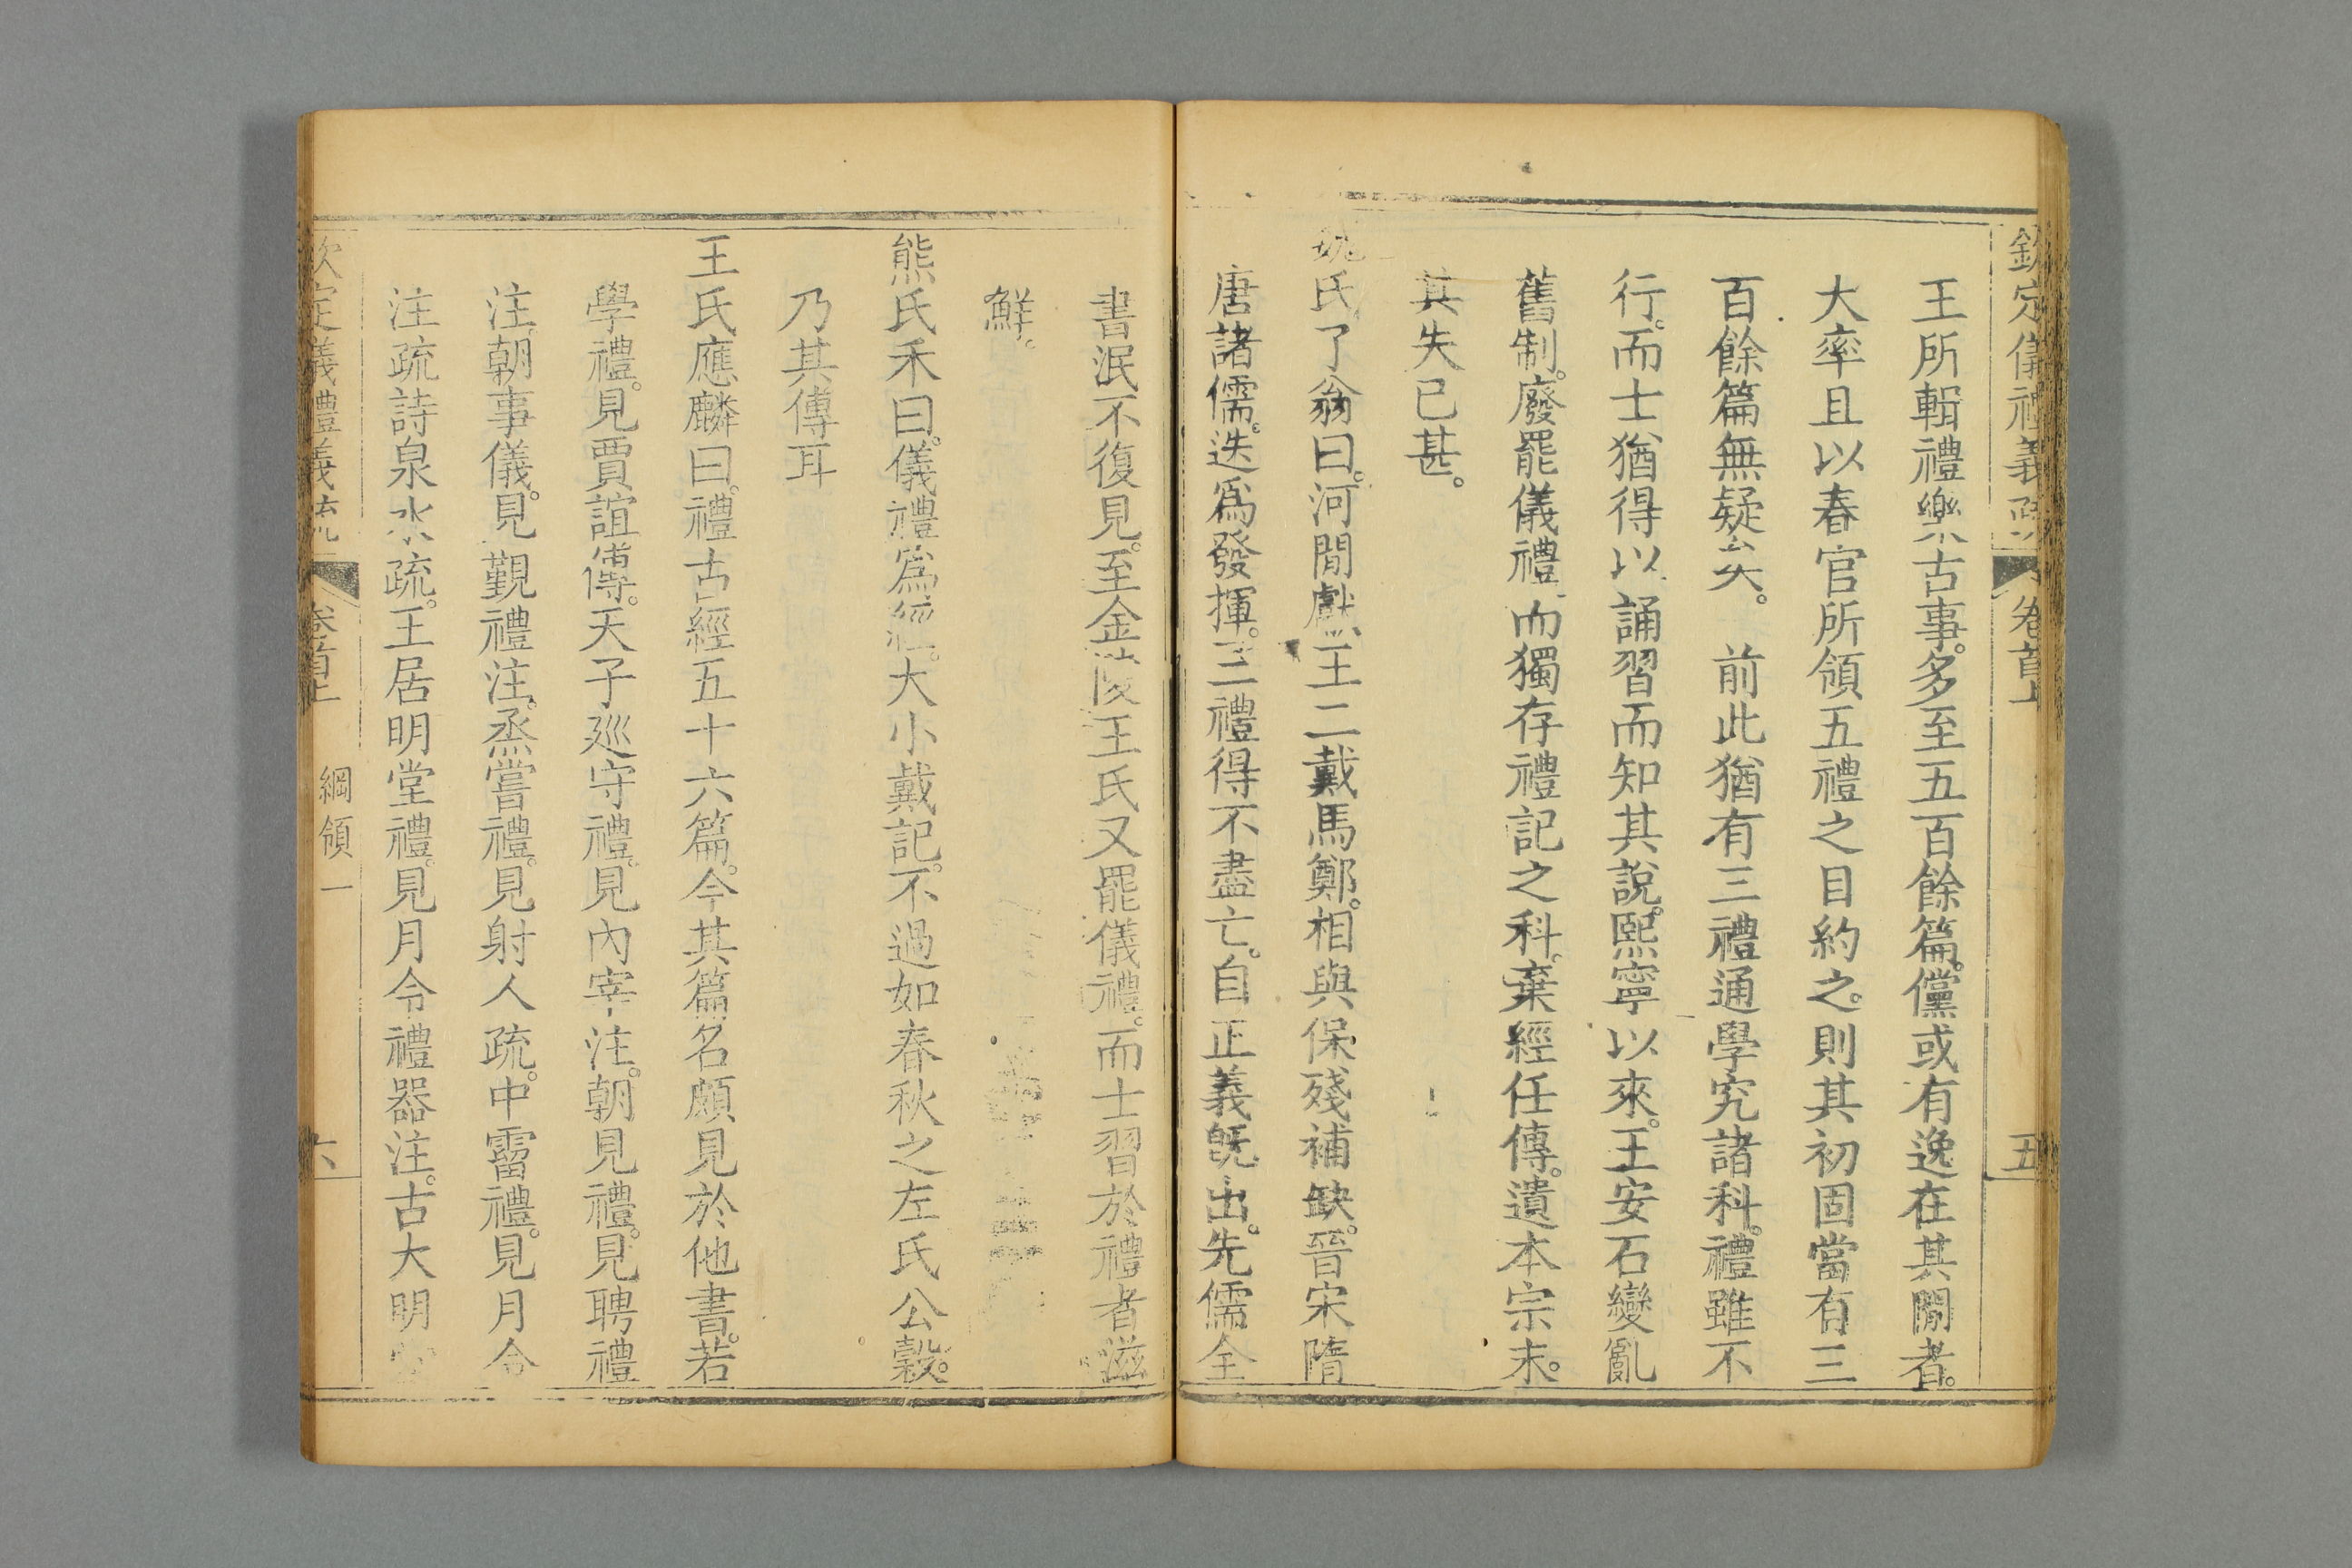 欽定儀禮義疏 卷首上 五
王所輯禮樂古事。多至五百餘篇。儻或有逸在其閒者。
大率且以春官所領五禮之目約之。則其初固當有三
百餘篇無疑矣。 前此猶有三禮通學究諸科。禮雖不
行。而士猶得以誦習而知其說。熙寧以來。王安石變亂
舊制。廢罷儀禮。而獨存禮記之科。棄經任傳。遺本宗末。
其失已甚。
氏了翁曰。河閒獻王二戴馬鄭。相與保殘補缺。晉宋隋
唐諸儒。迭爲發揮。三禮得不盡亡。自正義旣出。先儒全
書泯不復見。至金陵王氏又罷儀禮。而士習於禮者滋
鮮。
熊氏禾曰。儀禮爲經。大小戴記。不過如春秋之左氏公穀。
乃其傳耳
王氏應麟曰。禮古經五十六篇。今其篇名頗見於他書。若
學禮。見賈誼傳。天子廵守禮。見內宰注。朝見禮。見聘禮
注。朝事儀。見覲禮注。烝嘗禮。見射人疏。中霤禮。見月令
注疏詩泉水疏。王居明堂禮。見月令禮器注。古大明
欽定儀禮義疏 卷首上 綱領一 六